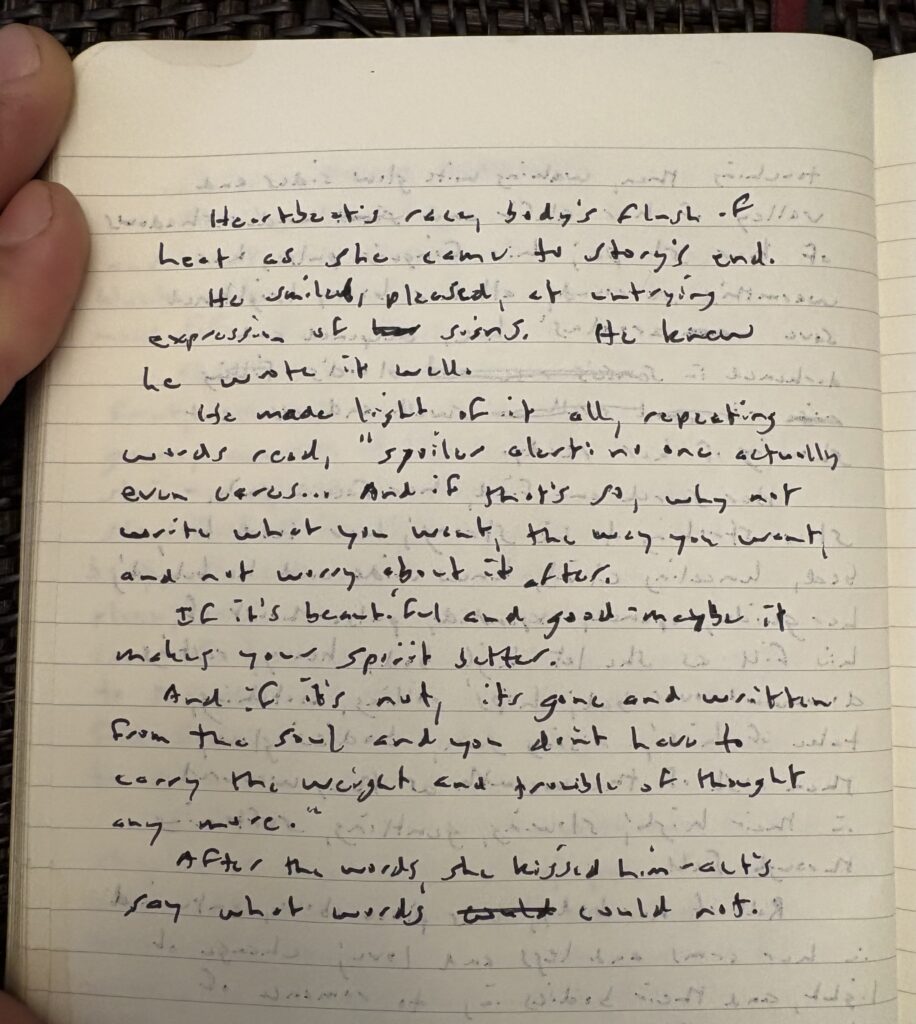 Heartbeat's race, body's flush of
heat as she came to story's end.
He smiled, pleased, at untrying
expression of signs. He knew
he wrote it well.
He made light of it all, repeating
words read, "spoiler alert: no one actually
even cares... And if that's so, why not
write what you want, the way you want,
and not worry about it after.
If it's beautiful and good - maybe it
makes your spirit better.
And if it's not, its gone and written
from the soul and you don't have to
carry the weight and trouble of thought
any more."
After the words, she kissed him - act's
say what words could not.